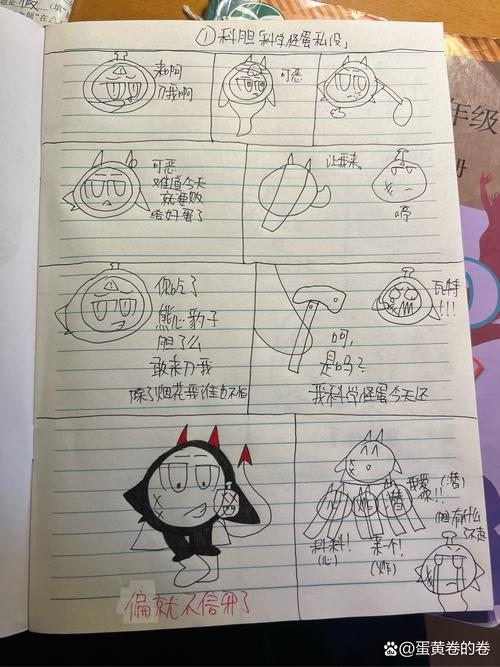 ①科胆「科学怪蛋私设」
来啊
刀我啊
可恶
可恶
难道今天
就要败
给奸蛋了
让我来。
哼
你吃了
熊心豹子
胆了么
敢来刀我
除了烟花我谁也不怕
瓦特
!!!
呵,
是吗?
我科学怪蛋今天还
偏就不信邪了
我爱(潜)
你!!
心 炸 潜
科科!
(心)
来个!
(炸)
年级
册
百度@蛋黄卷的卷